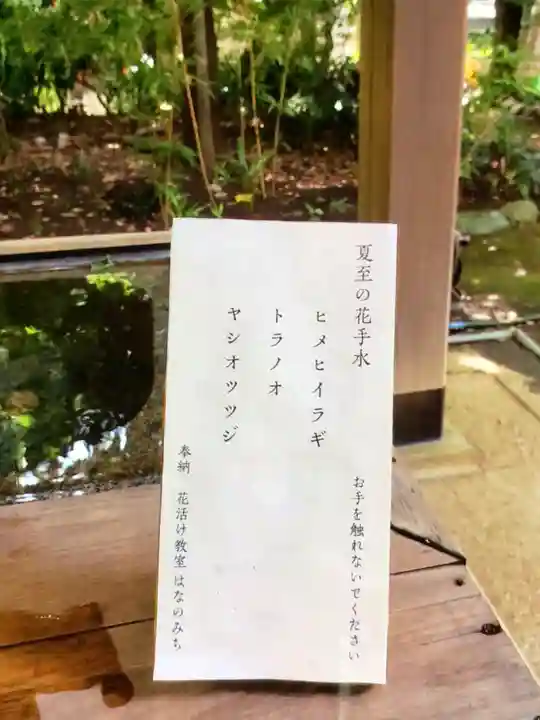 夏至の花手水
お手を触れないでください
ヒメヒイラギ
トラノオ
ヤシオツツジ
奉納　花活け教室 はなのみち